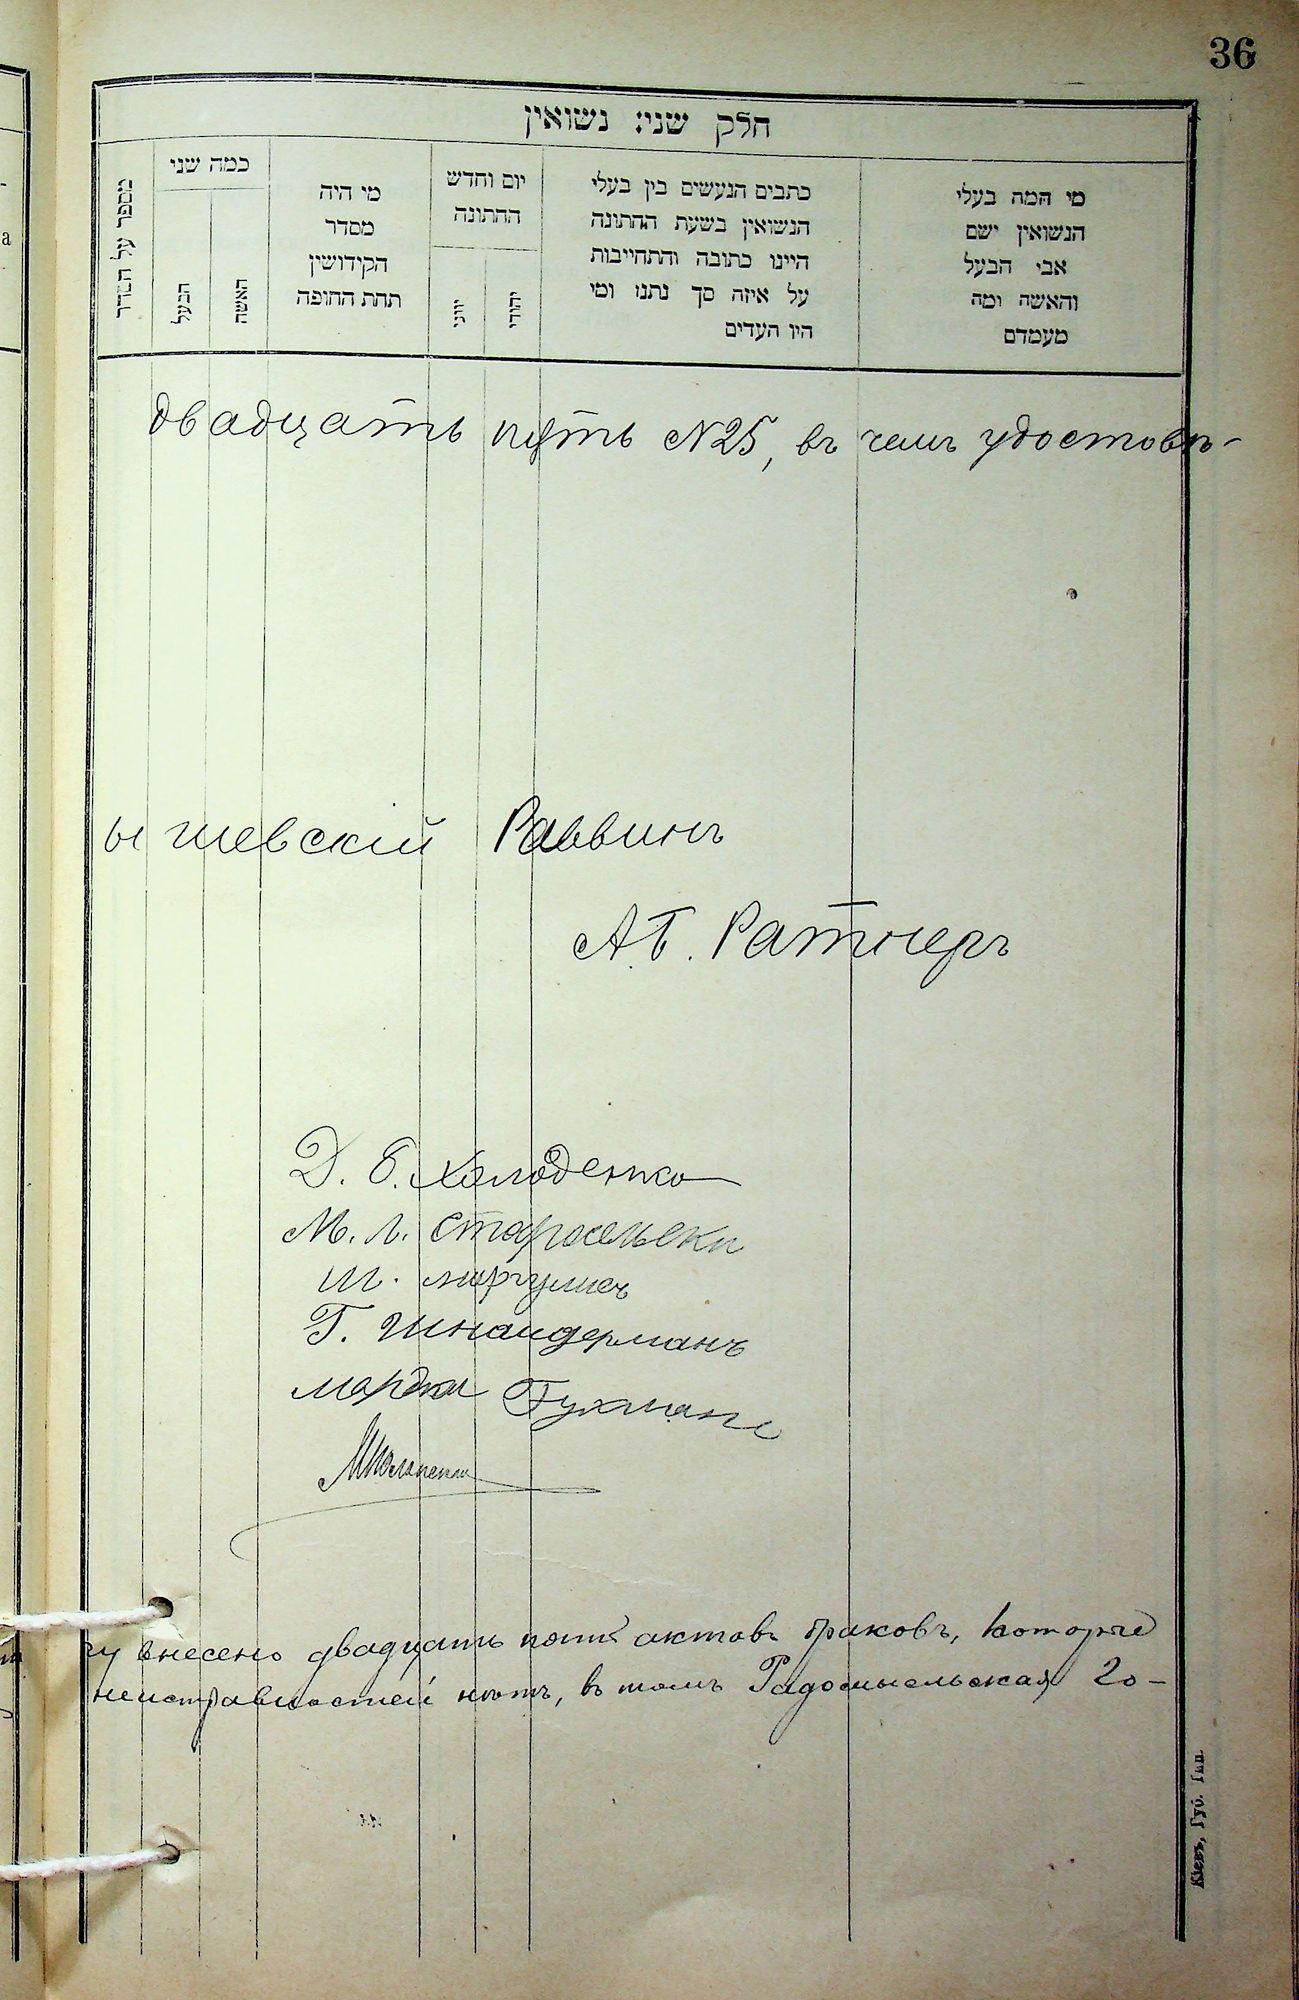 36
חלק שני: נשואין
מספר על הסדר
כמה שני
הבעל
האשה
מי היה
מסדר
הקידושין
תחת החופה
יום וחדש
החתונה
יווני
יהודי
כתבים הנעשים בין בעלי
הנשואין בשעת החתונה
היינו כתובה והתחייבות
על איזה סך נתנו ומי
היו העדים
מי המה בעלי
הנשואין ושם
אבי הבעל
והאשה ומה
מעמדם
двадцать пять № 25, въ чемъ удостовѣ-
ышевскій Раввинъ
А. Б. Ратнеръ
Д. Б. Холоденко
М. Л. Старосельски
Ш. Маргулисъ
Г. Шнайдерманъ
Мордко Гухманъ
гу внесено двадцать пять актовъ браковъ, которые
неисправностей нѣтъ, въ томъ Радомысльская Го-
Кіевъ, Губ. Тип.